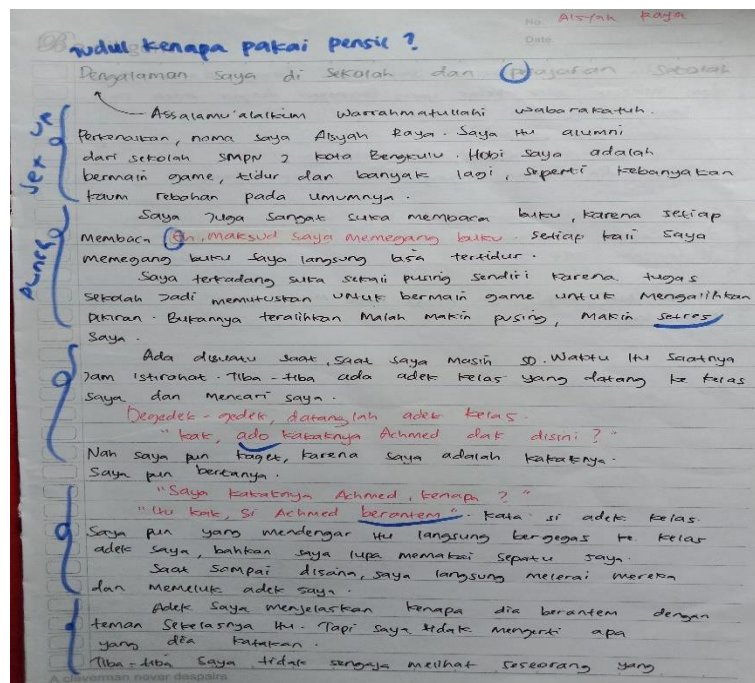 No. Aisyah Raya
Date
Judul kenapa pakai pensil ?
Pengalaman saya di sekolah dan pelajaran sekolah
Assalamu'alaikum Warrahmatullahi wabarakatuh.
set up
Perkenalkan, nama saya Aisyah Raya. Saya itu alumni
dari sekolah SMPN 2 Kota Bengkulu. Hobi saya adalah
bermain game, tidur dan banyak lagi, seperti kebanyakan
kaum rebahan pada umumnya.
Saya juga sangat suka membaca buku, karena setiap
Membaca eh, maksud saya memegang buku setiap kali saya
memegang buku saya langsung bisa tertidur.
Saya terkadang suka sekali pusing sendiri karena tugas
sekolah jadi memutuskan untuk bermain game untuk mengalihkan
pikiran. Bukannya teralihkan malah makin pusing, makin setres
saya.
Ada disuatu saat, saat saya masih SD. Waktu itu saatnya
jam istirahat. Tiba-tiba ada adek kelas yang datang ke kelas
saya dan mencari saya.
Degedek-gedek, datanglah adek kelas.
"kak, ado kakaknya Achmed dak disini ?"
Nah saya pun kaget, karena saya adalah kakaknya.
Saya pun bertanya.
"Saya kakaknya Achmed, kenapa ?"
"Itu kak, si Achmed berantem". kata si adek kelas.
Saya pun yang mendengar itu langsung bergegas ke kelas
adek saya, bahkan saya lupa memakai sepatu saya.
Saat sampai disana, saya langsung melerai mereka
dan memeluk adek saya.
Adek saya menjelaskan kenapa dia berantem dengan
teman sekelasnya itu. Tapi saya tidak mengerti apa
yang dia katakan.
Tiba-tiba saya tidak sengaja melihat seseorang yang
A cleverman never despairs